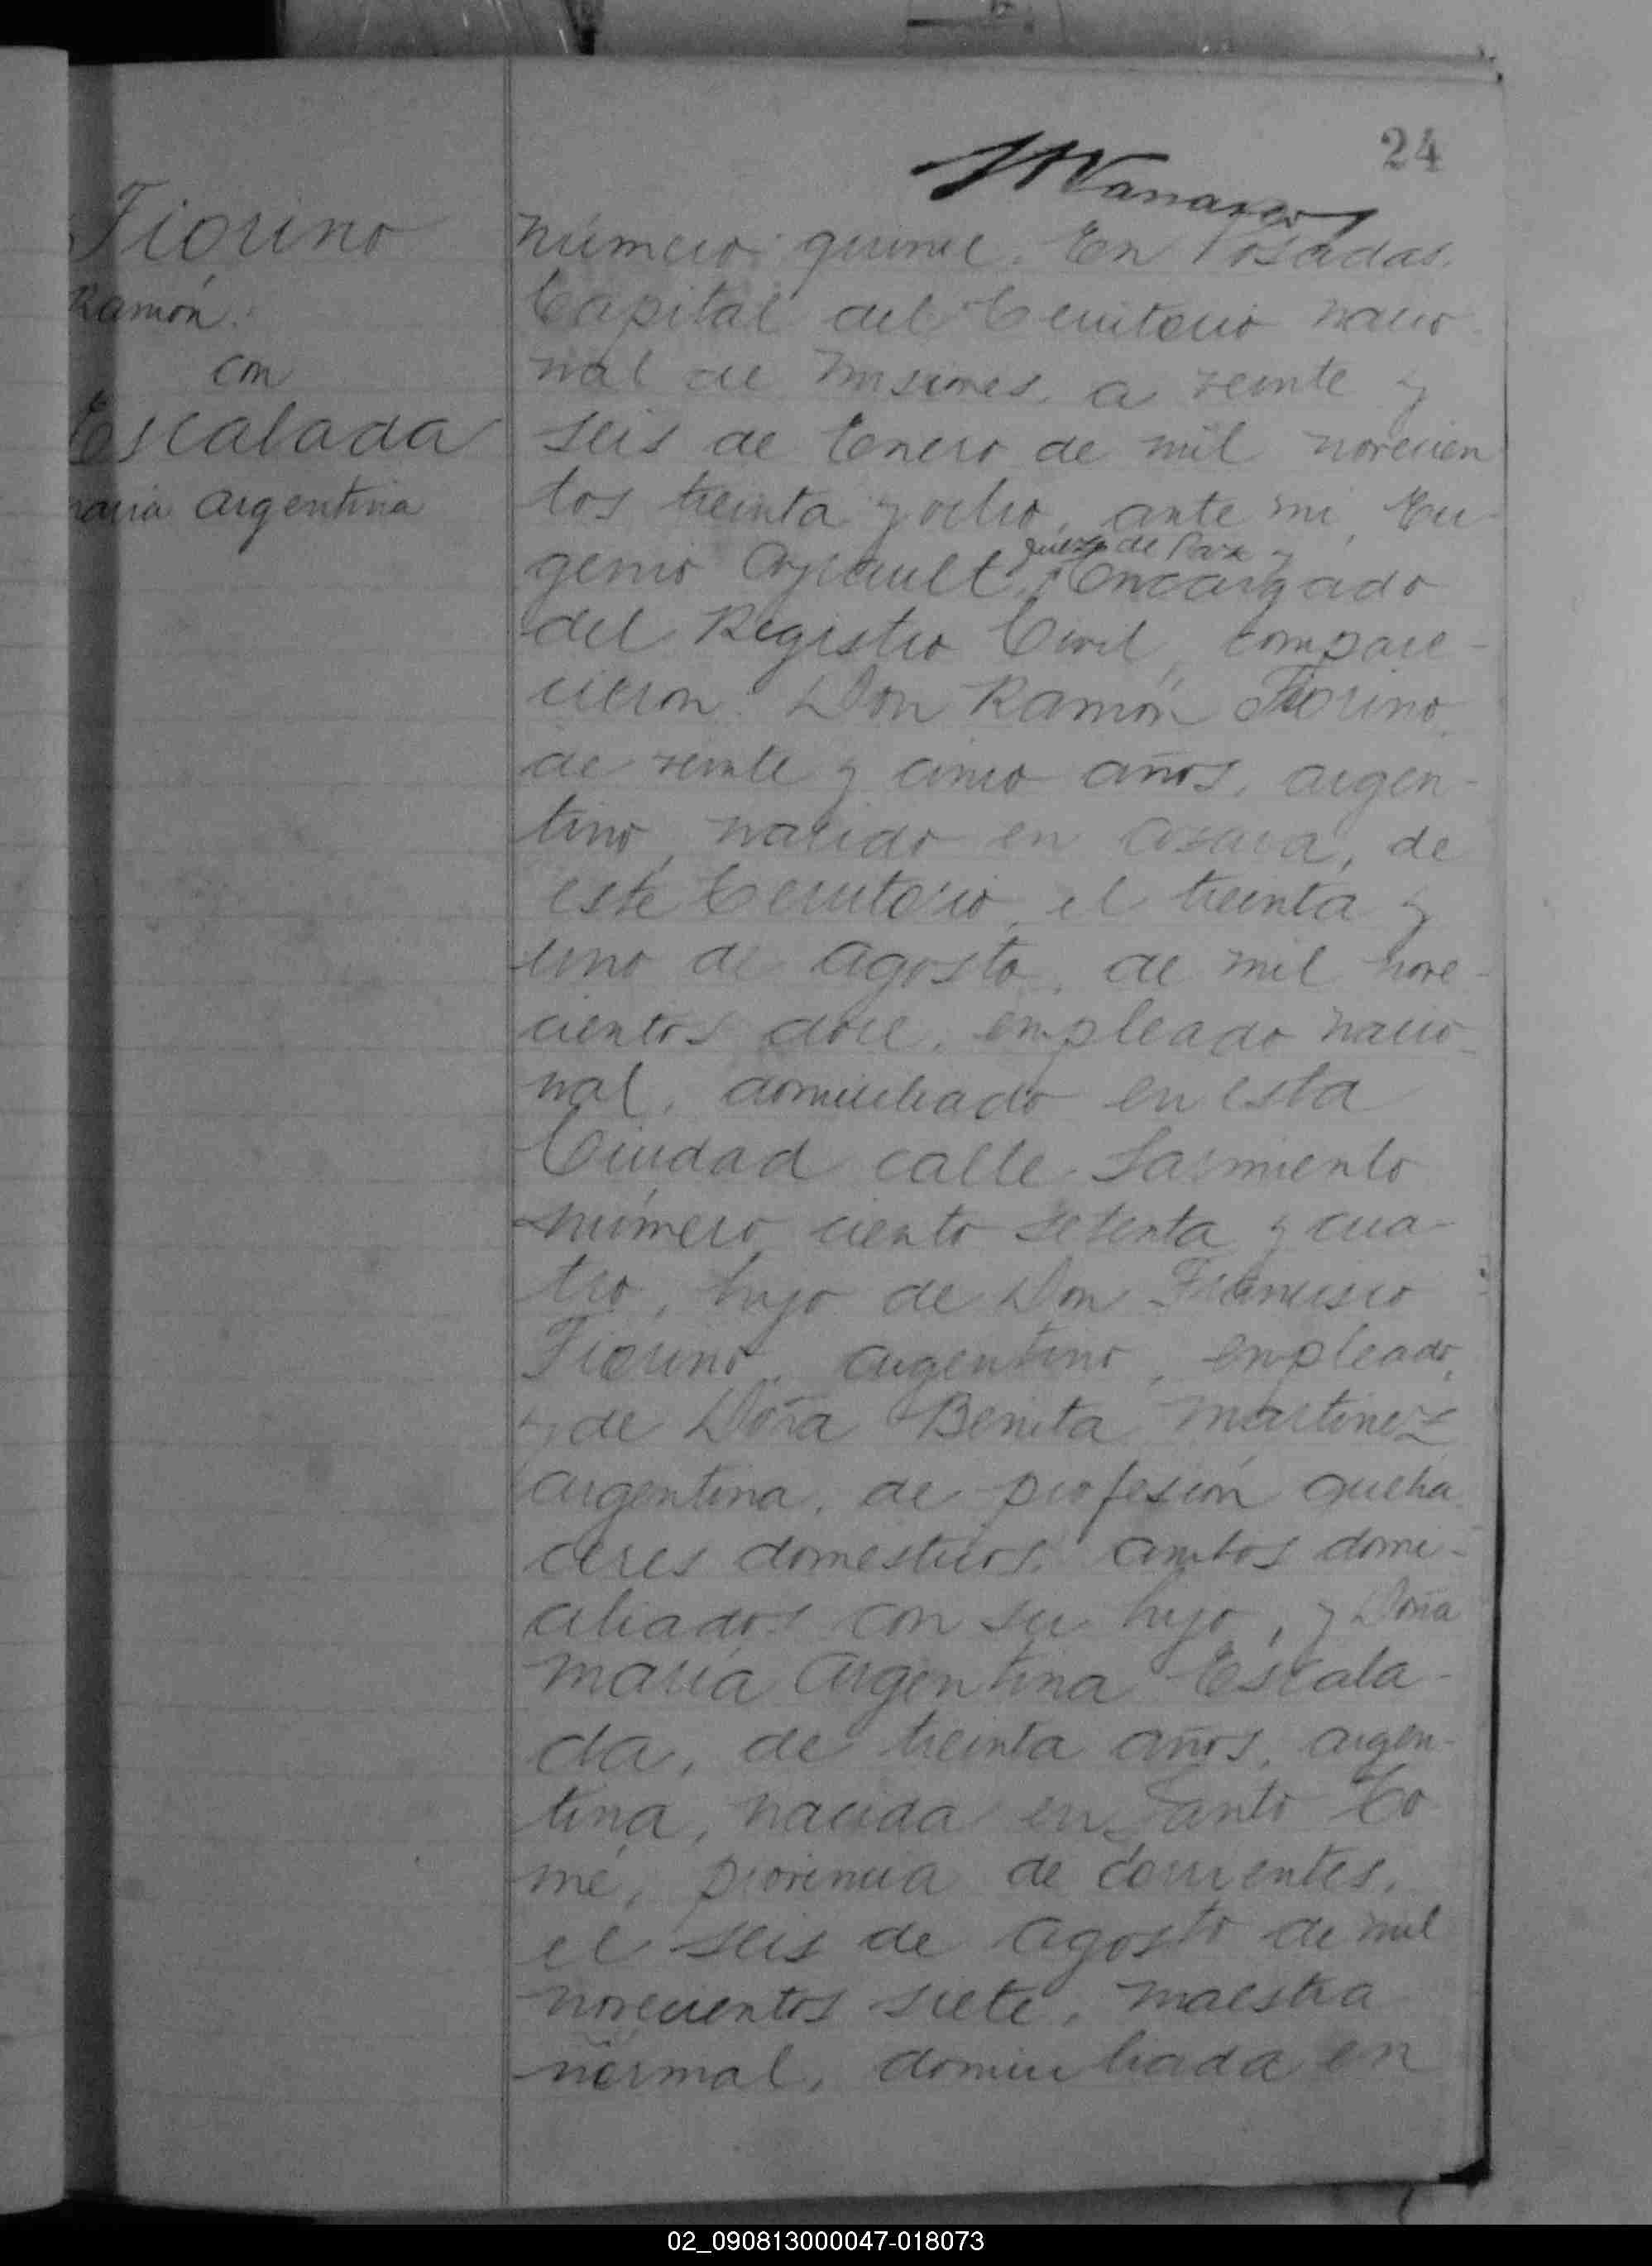 24
Fiorino
Ramón
con
Escalada
maria Argentina
Número quince. En Posadas,
Capital del Territorio nacio-
nal de Misiones, a veinte y
seis de Enero de mil novecien
tos treinta y ocho, ante mi, Eu-
genio
Juez de Paz y
Encargado
del Registro Civil, compare-
cieron: Don Ramón Fiorino,
de veinte y cinco años, argen-
tino, nacido en Azara, de
este Territorio, el treinta y
uno de Agosto, de mil nove-
cientos doce, empleado nacio-
nal, domiciliado en esta
Ciudad calle Sarmiento
número ciento setenta y cua-
tro, hijo de Don Francisco
Fiorino, argentino, empleado,
y de Doña Benita Martinez
argentina, de profesión queha
ceres domesticos, ambos domi-
ciliados con su hijo, y Doña
Maria Argentina Escala-
da, de treinta años, argen-
tina, nacida en Santo To
mé, provincia de Corrientes,
el seis de Agosto de mil
novecientos siete, maestra
normal, domiciliada en
02_090813000047-018073